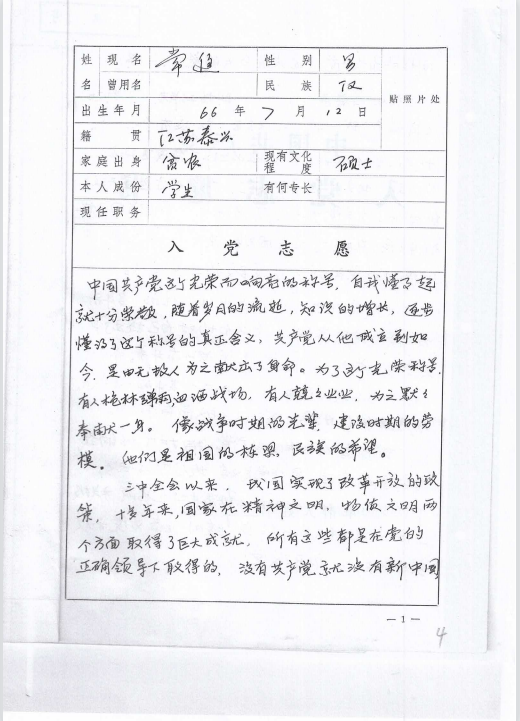 姓 现名 常 性别 男
名 曾用名 民族 汉 贴照片处
出生年月 66年7月12日
籍贯 江苏泰兴
家庭出身 贫农 现有文化程度 硕士
本人成份 学生 有何专长
现任职务
入党志愿
中国共产党这个光荣而响亮的称号，自我懂事起
就十分崇敬，随着岁月的流逝，知识的增长，逐步
懂得了这个称号的真正含义，共产党从他成立到如
今，是由无数人为之献出了身命。为了这个光荣称号，
有人枪林弹雨血洒战场，有人兢々业业，为之默々
奉献一身。像战争时期的先辈，建设时期的劳
模。他们是祖国的栋梁，民族的希望。
三中全会以来，我国实现了改革开放的政
策，十多年来，国家在精神文明，物质文明两
个方面取得了巨大成就，所有这些都是在党的
正确领导下取得的，没有共产党就没有新中国
— 1 —
4